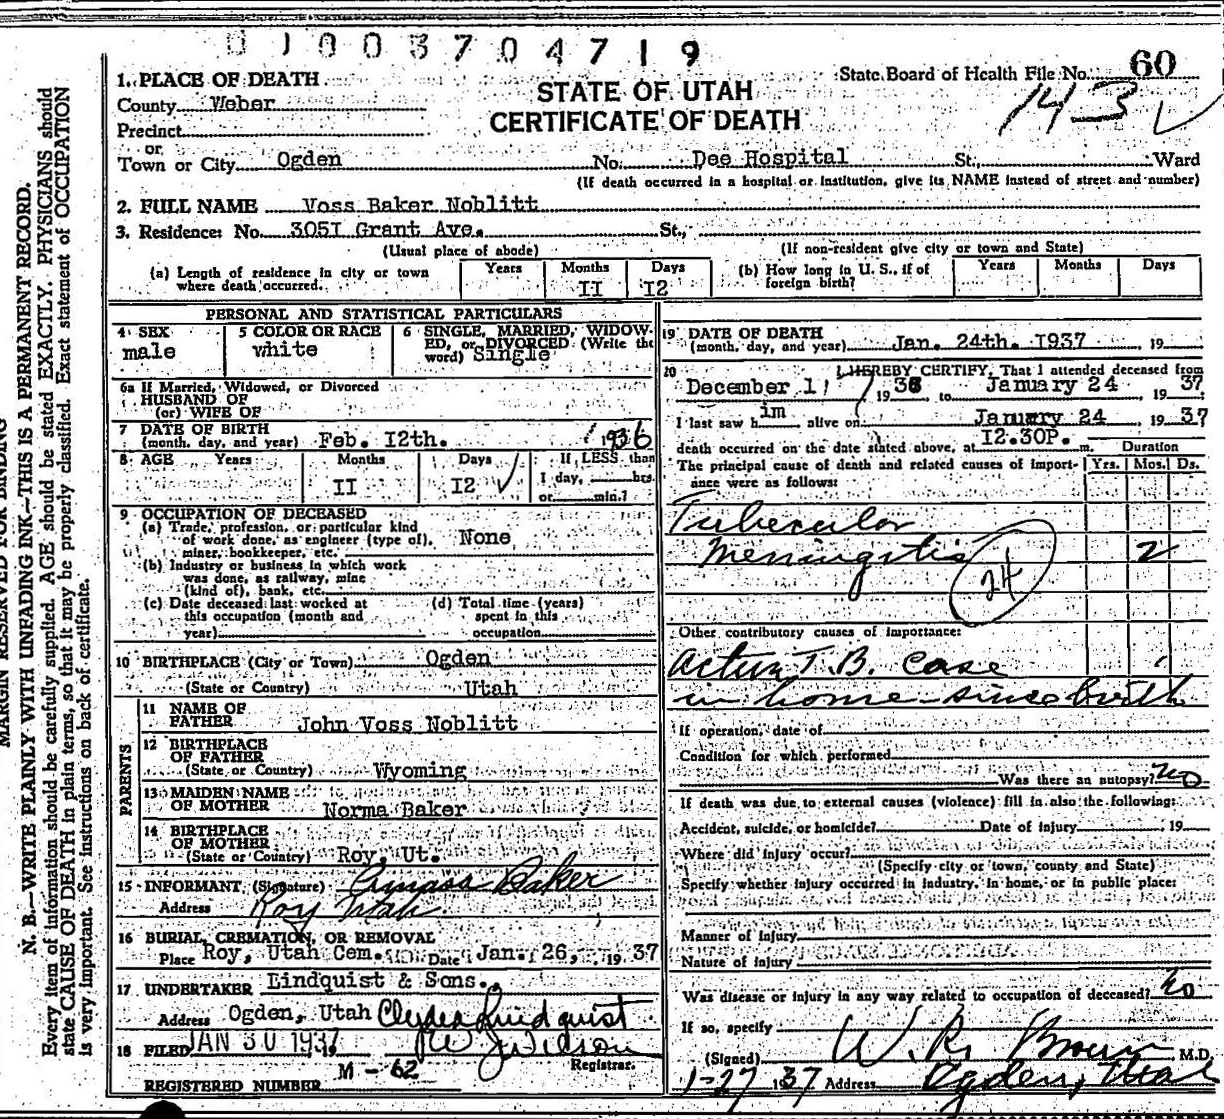 0 1 0 0 3 7 0 4 7 1 9
State Board of Health File No. 60
143
STATE OF UTAH
CERTIFICATE OF DEATH
1. PLACE OF DEATH
County Weber
Precinct
or
Town or City Ogden No. Dee Hospital St., Ward
(If death occurred in a hospital or institution, give its NAME instead of street and number)
2. FULL NAME Voss Baker Noblitt
3. Residence: No. 305I Grant Ave. St.,
(Usual place of abode) (If non-resident give city or town and State)
(a) Length of residence in city or town where death occurred. Years Months II Days I2
(b) How long in U. S., if of foreign birth? Years Months Days
PERSONAL AND STATISTICAL PARTICULARS
4 SEX male
5 COLOR OR RACE white
6 SINGLE, MARRIED, WIDOWED, or DIVORCED (Write the word) Single
6a If Married, Widowed, or Divorced
HUSBAND OF
(or) WIFE OF
7 DATE OF BIRTH
(month, day, and year) Feb. I2th. 1936
8 AGE Years Months II Days I2 If LESS than
I day, hrs.
or min.?
9 OCCUPATION OF DECEASED
(a) Trade, profession, or particular kind
of work done, as engineer (type of), None
miner, bookkeeper, etc.
(b) Industry or business in which work
was done, as railway, mine
(kind of), bank, etc.
(c) Date deceased last worked at
this occupation (month and
year)
(d) Total time (years)
spent in this
occupation
10 BIRTHPLACE (City or Town) Ogden
(State or Country) Utah
PARENTS
11 NAME OF
FATHER John Voss Noblitt
12 BIRTHPLACE
OF FATHER
(State or Country) Wyoming
13 MAIDEN NAME
OF MOTHER Norma Baker
14 BIRTHPLACE
OF MOTHER
(State or Country) Roy, Ut.
15 INFORMANT (Signature) Amasa Baker
Address Roy Utah
16 BURIAL, CREMATION, OR REMOVAL
Place Roy, Utah Cem. Date Jan. 26, 19 37
17 UNDERTAKER Lindquist & Sons.
Address Ogden, Utah Clyde Lindquist
18 FILED JAN 30 1937, Wilson
Registrar.
REGISTERED NUMBER M - 62
19 DATE OF DEATH
(month, day, and year) Jan. 24th. I937 , 19
20 I HEREBY CERTIFY, That I attended deceased from
December 1 , 1936 to January 24 , 19 37
I last saw h im alive on January 24 , 19 37
death occurred on the date stated above, at I2.30P. m.
The principal cause of death and related causes of importance were as follows:
Duration
Yrs. Mos. Ds.
Tubercular
Meningitis 2
24
Other contributory causes of importance:
Active T.B. Case
in home since birth
If operation, date of
Condition for which performed
Was there an autopsy? no
If death was due to external causes (violence) fill in also the following:
Accident, suicide, or homicide? Date of injury , 19
Where did injury occur?
(Specify city or town, county and State)
Specify whether injury occurred in industry, in home, or in public place:
Manner of injury
Nature of injury
Was disease or injury in any way related to occupation of deceased? no
If so, specify
(Signed) W. R. Brown M.D.
1-27 1937 Address Ogden, Utah
MARGIN RESERVED FOR BINDING
N. B.—WRITE PLAINLY WITH UNFADING INK—THIS IS A PERMANENT RECORD.
Every item of information should be carefully supplied. AGE should be stated EXACTLY. PHYSICIANS should
state CAUSE OF DEATH in plain terms, so that it may be properly classified. Exact statement of OCCUPATION
is very important. See instructions on back of certificate.